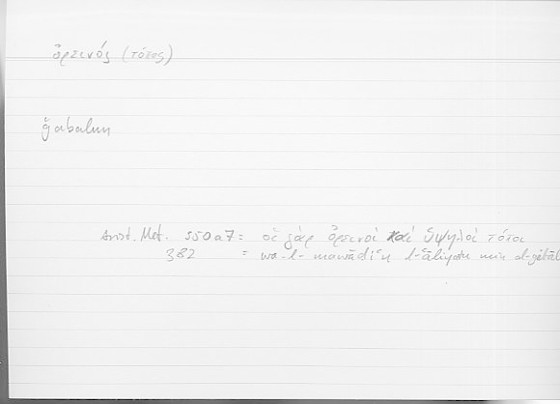 ὀρεινός (τόπος)
ǧabalun
Arist. Met. 350a7 = οἱ γὰρ ὀρεινοὶ καὶ ὑψηλοὶ τόποι
382 = wa-l-mawāḍiʿu l-ʿāliyatu min al-ǧibāl